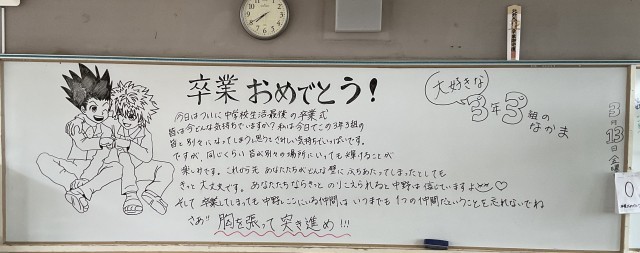 卒業おめでとう!
今日はついに中学校生活最後の卒業式
皆は今どんな気持ちでいますか?私は今日でこの3年3組の
皆と別々になってしまうと思うとさみしい気持ちでいっぱいです。
ですが、同じくらい皆が別々の場所にいっても輝けることが
楽しみです。これから先 あなたたちがどんな壁にぶちあたってしまったとしても
きっと大丈夫です。あなたたちならきっとのりこえられると中野は信じていますよ♡
そして卒業してしまっても中野とここにいる仲間はいつまでも1つの仲間だということを忘れないでね
さあ!! 胸を張って突き進め!!!
大好きな
3年3組の
なかま
3月13日金曜
0